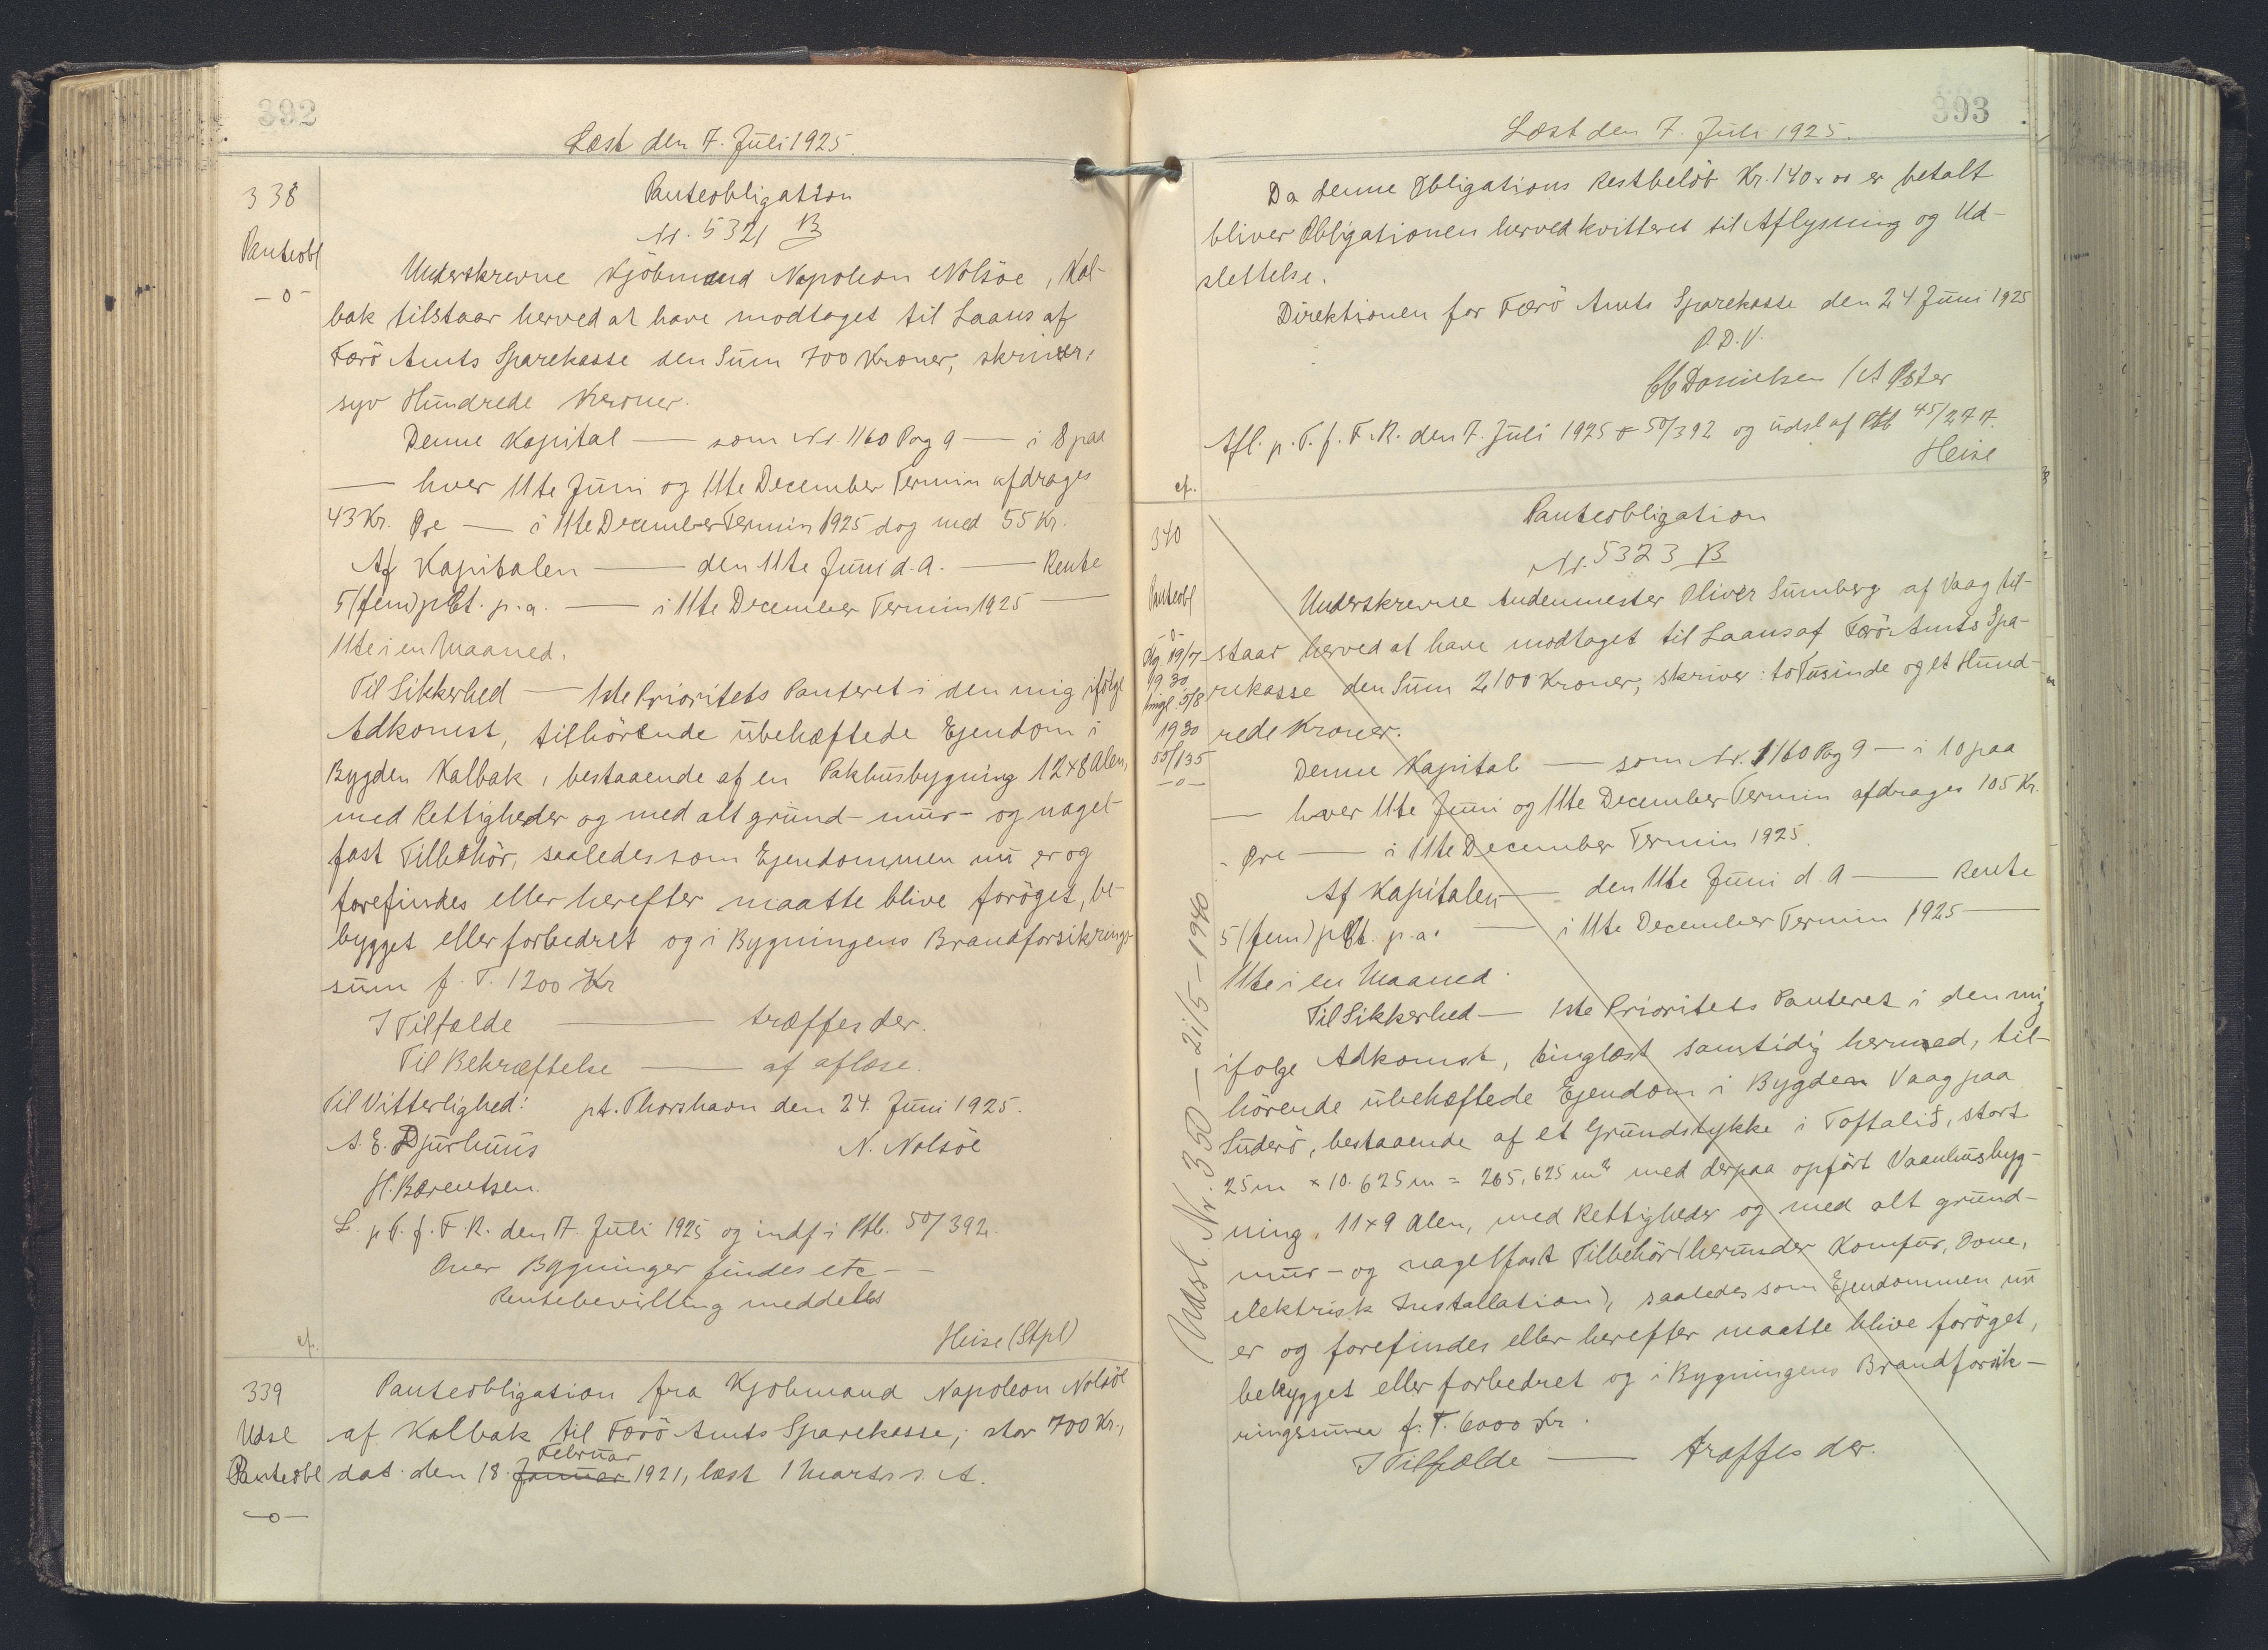 392
Læst den 7. Juli 1925.
338
Panteobl
-o-
Panteobligation
Nr. 5321 B
Underskrevne Kjöbmand Napoleon Nolsöe, Kal-
bak tilstaar herved at have modtaget til Laans af
Færö Amts Sparekasse den Sum 700 Kroner, skriver:
syv Hundrede Kroner.
Denne Kapital — som Nr. 1160 Pag 9 — i 8 paa
— hver 11te Juni og 11te December Termin afdrages
43 Kr. Øre — i 11te December Termin 1925 dog med 55 Kr.
Af Kapitalen — den 11te Juni d. A. — Rente
5 (fem) pCt. p. a. — i 11te December Termin 1925 —
11te i en Maaned.
Til Sikkerhed — 1ste Prioritets Panteret i den mig ifölge
Adkomst, tilhörende ubehæftede Ejendom i
Bygden Kalbak, bestaaende af en Pakhusbygning 12x8 Alen,
med Rettigheder og med alt grund- mur- og nagel-
fast Tilbehör, saaledes som Ejendommen nu er og
forefindes eller herefter maatte blive foröget, be-
bygget eller forbedret og i Bygningens Brandforsikrings-
sum f. T. 1200 Kr
I Tilfælde — træffes der.
Til Bekræftelse — af aflæse.
Til Vitterlighed: pt. Thorshavn den 24. Juni 1925.
A. E. Djurhuus N. Nolsöe
H. Bærentsen.
L. p. T. f. F. R. den 7. Juli 1925 og indf i Ptb. 50/392.
Over Bygninger findes etc —
Rentebevilling meddelt
Heise (Stpl)
cf.
339
Udsl
Panteobl
-o-
Panteobligation fra Kjöbmand Napoleon Nolsöe
af Kalbak til Færö Amts Sparekasse, stor 700 Kr.,
Februar
dat. den 18. Januar 1921, læst 1 Marts s. A.
393
Læst den 7. Juli 1925.
Da denne Obligations Restbelöb Kr. 140.00 er betalt
bliver Obligationen herved kvitteret til Aflysning og Ud-
slettelse.
Direktionen for Færö Amts Sparekasse den 24 Juni 1925
P. D. V.
Danielsen / A Øster
Afl. p. T. f. F. R. den 7. Juli 1925 50/392 og udsl af Ptb 45/277.
Heise
cf.
340
Panteobl
-o-
19/7
1930
tingl. 5/8
1930
55/135
-o-
Udsl. Nr. 350 — 21/5 — 1940
Panteobligation
Nr. 5323 B
Underskrevne Andenmester Oliver Sumberg af Vaag til-
staar herved at have modtaget til Laans af Færö Amts Spa-
rekasse den Sum 2100 Kroner, skriver: to Tusinde og et Hund-
rede Kroner.
Denne Kapital — som Nr. 1160 Pag 9 — i 10 paa
— hver 11te Juni og 11te December Termin afdrages 105 Kr.
- Øre — i 11te December Termin 1925.
Af Kapitalen — den 11te Juni d. A — Rente
5 (fem) pCt. p. a. — i 11te December Termin 1925 —
11te i en Maaned.
Til Sikkerhed — 1ste Prioritets Panteret i den mig
ifolge Adkomst, tinglæst samtidig hermed, til-
hörende ubehæftede Ejendom i Bygden Vaag paa
Suderö, bestaaende af et Grundstykke i Toftalið, stort
25 m x 10.625 m = 265,625 m² med derpaa opfört Vaanhusbyg-
ning, 11x9 Alen, med Rettigheder og med alt grund-
mur- og nagelfast Tilbehör (herunder Komfur, Ovne,
elektrisk Installation), saaledes som Ejendommen nu
er og forefindes eller herefter maatte blive foröget,
bebygget eller forbedret og i Bygningens Brandforsik-
ringssum f. T. 6000 Kr.
I Tilfælde — træffes der.